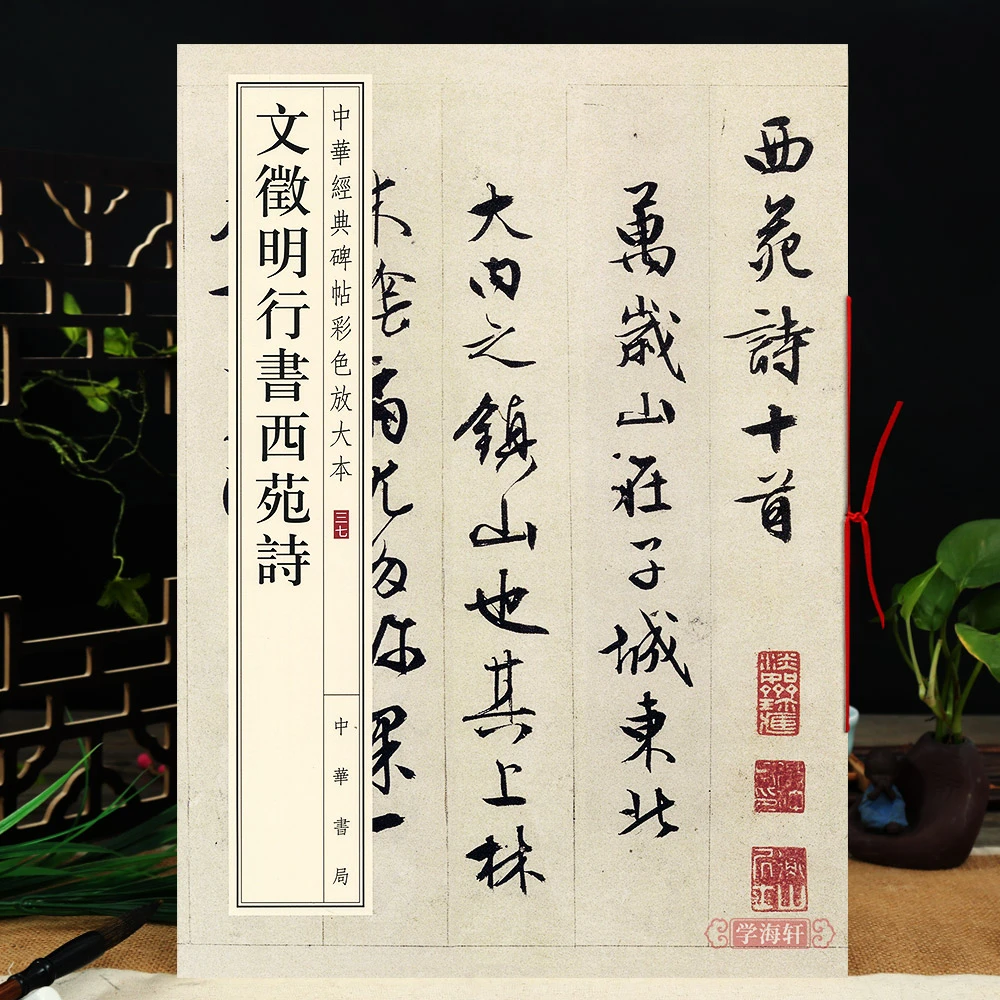 西苑詩十首
萬歲山在子城東北
大内之鎮山也其上林
木陰翳尤多珍果一
中華經典碑帖彩色放大本
三七
中華書局
文徵明行書西苑詩
学海轩